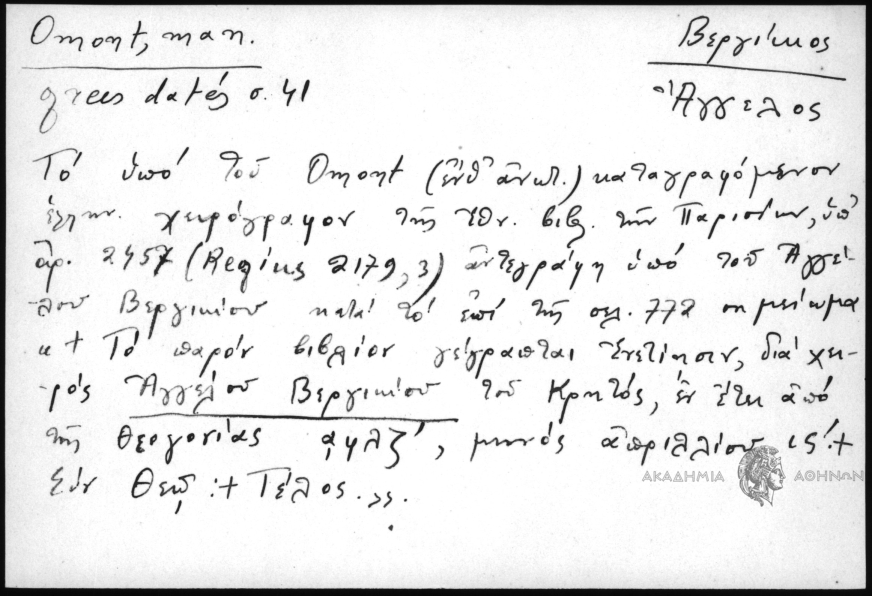 Omont, man.
Βεργίκιος
grecs datés σ. 41
Ἄγγελος
Τό ὑπό τοῦ Omont (ἔνθ' ἀνωτ.) καταγραφόμενον
ἑλλην. χειρόγραφον τῆς Ἐθν. βιβλ. τῶν Παρισίων, ὑπ'
ἀρ. 2457 (Regius 2179, 3) ἀντεγράφη ὑπό τοῦ Ἀγγέ-
-λου Βεργικίου κατά τό ἐπί τῆς σελ. 772 σημείωμα
« + Τό παρόν βιβλίον γέγραπται Ἐνετίησιν, διά χει-
-ρός Ἀγγέλου Βεργικίου τοῦ Κρητός, ἐν ἔτει ἀπό
τῆς θεογονίας ͵αφλζ', μηνός ἀπριλλίου ιϛ':+
Σύν Θεῷ :+ Τέλος.»
ΑΚΑΔΗΜΙΑ ΑΘΗΝΩΝ